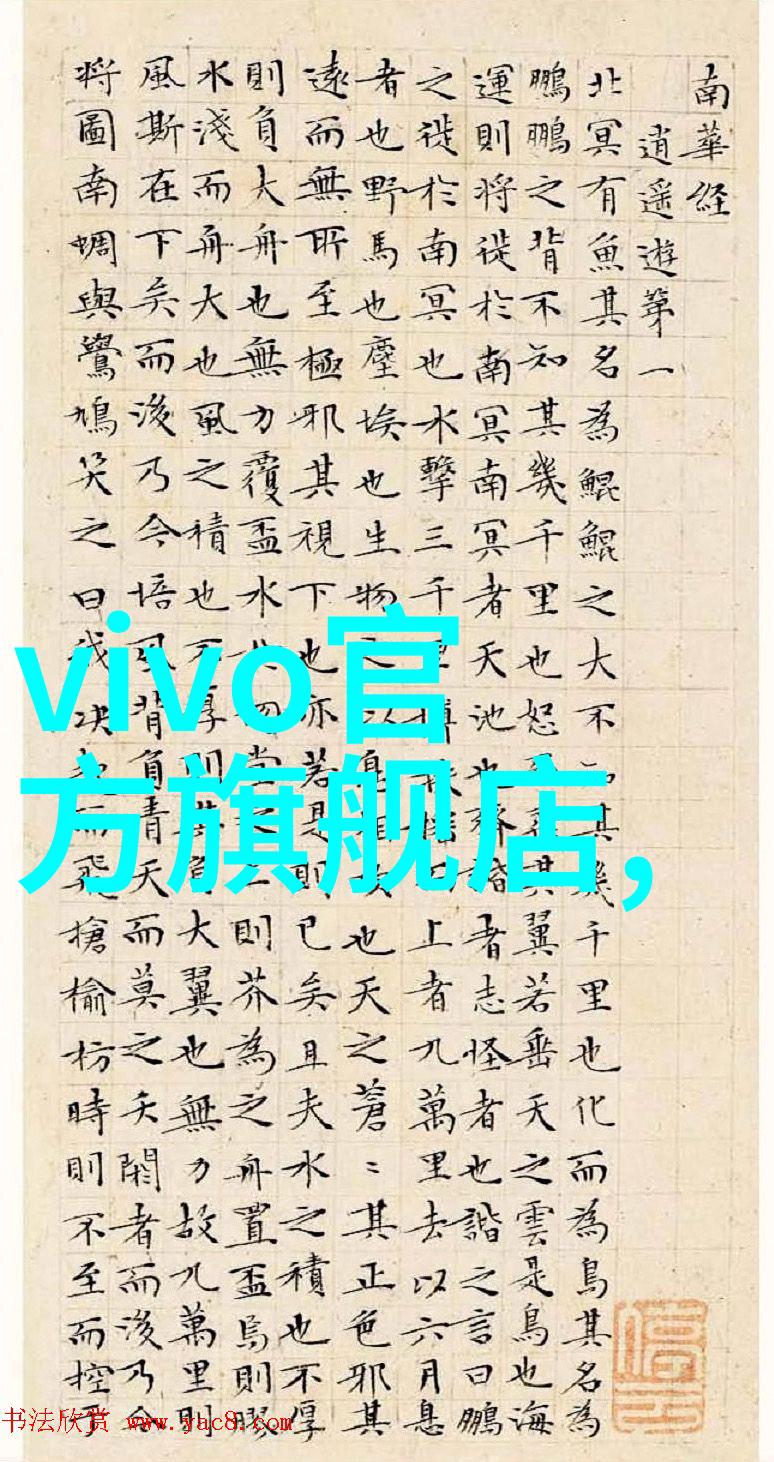 南華経
逍遥遊第一
北冥有魚其名為鯤鯤之大不知其幾千里也化而為鳥其名為
鵬鵬之背不知其幾千里也怒而飛其翼若垂天之雲是鳥也海
運則将徙於南冥南冥者天池也齊諧者志怪者也諧之言曰鵬
之徙於南冥也水擊三千里摶扶搖而上者九萬里去以六月息
者也野馬也塵埃也生物之以息相吹也天之蒼〻其正色邪其
遠而無所至極邪其視下也亦若是則已矣且夫水之積也不厚
則負大舟也無力覆盃水於坳堂之上則芥為之舟置盃焉則膠
水淺而舟大也風之積也不厚則其負大翼也無力故九萬里則
風斯在下矣而後乃今培風背負青天而莫之夭閼者而後乃今
将圖南蜩與鷽鳩笑之曰我决起而飛搶榆枋時則不至而控於
vivo官
方旗舰店,
书法欣赏 www.yac8.com